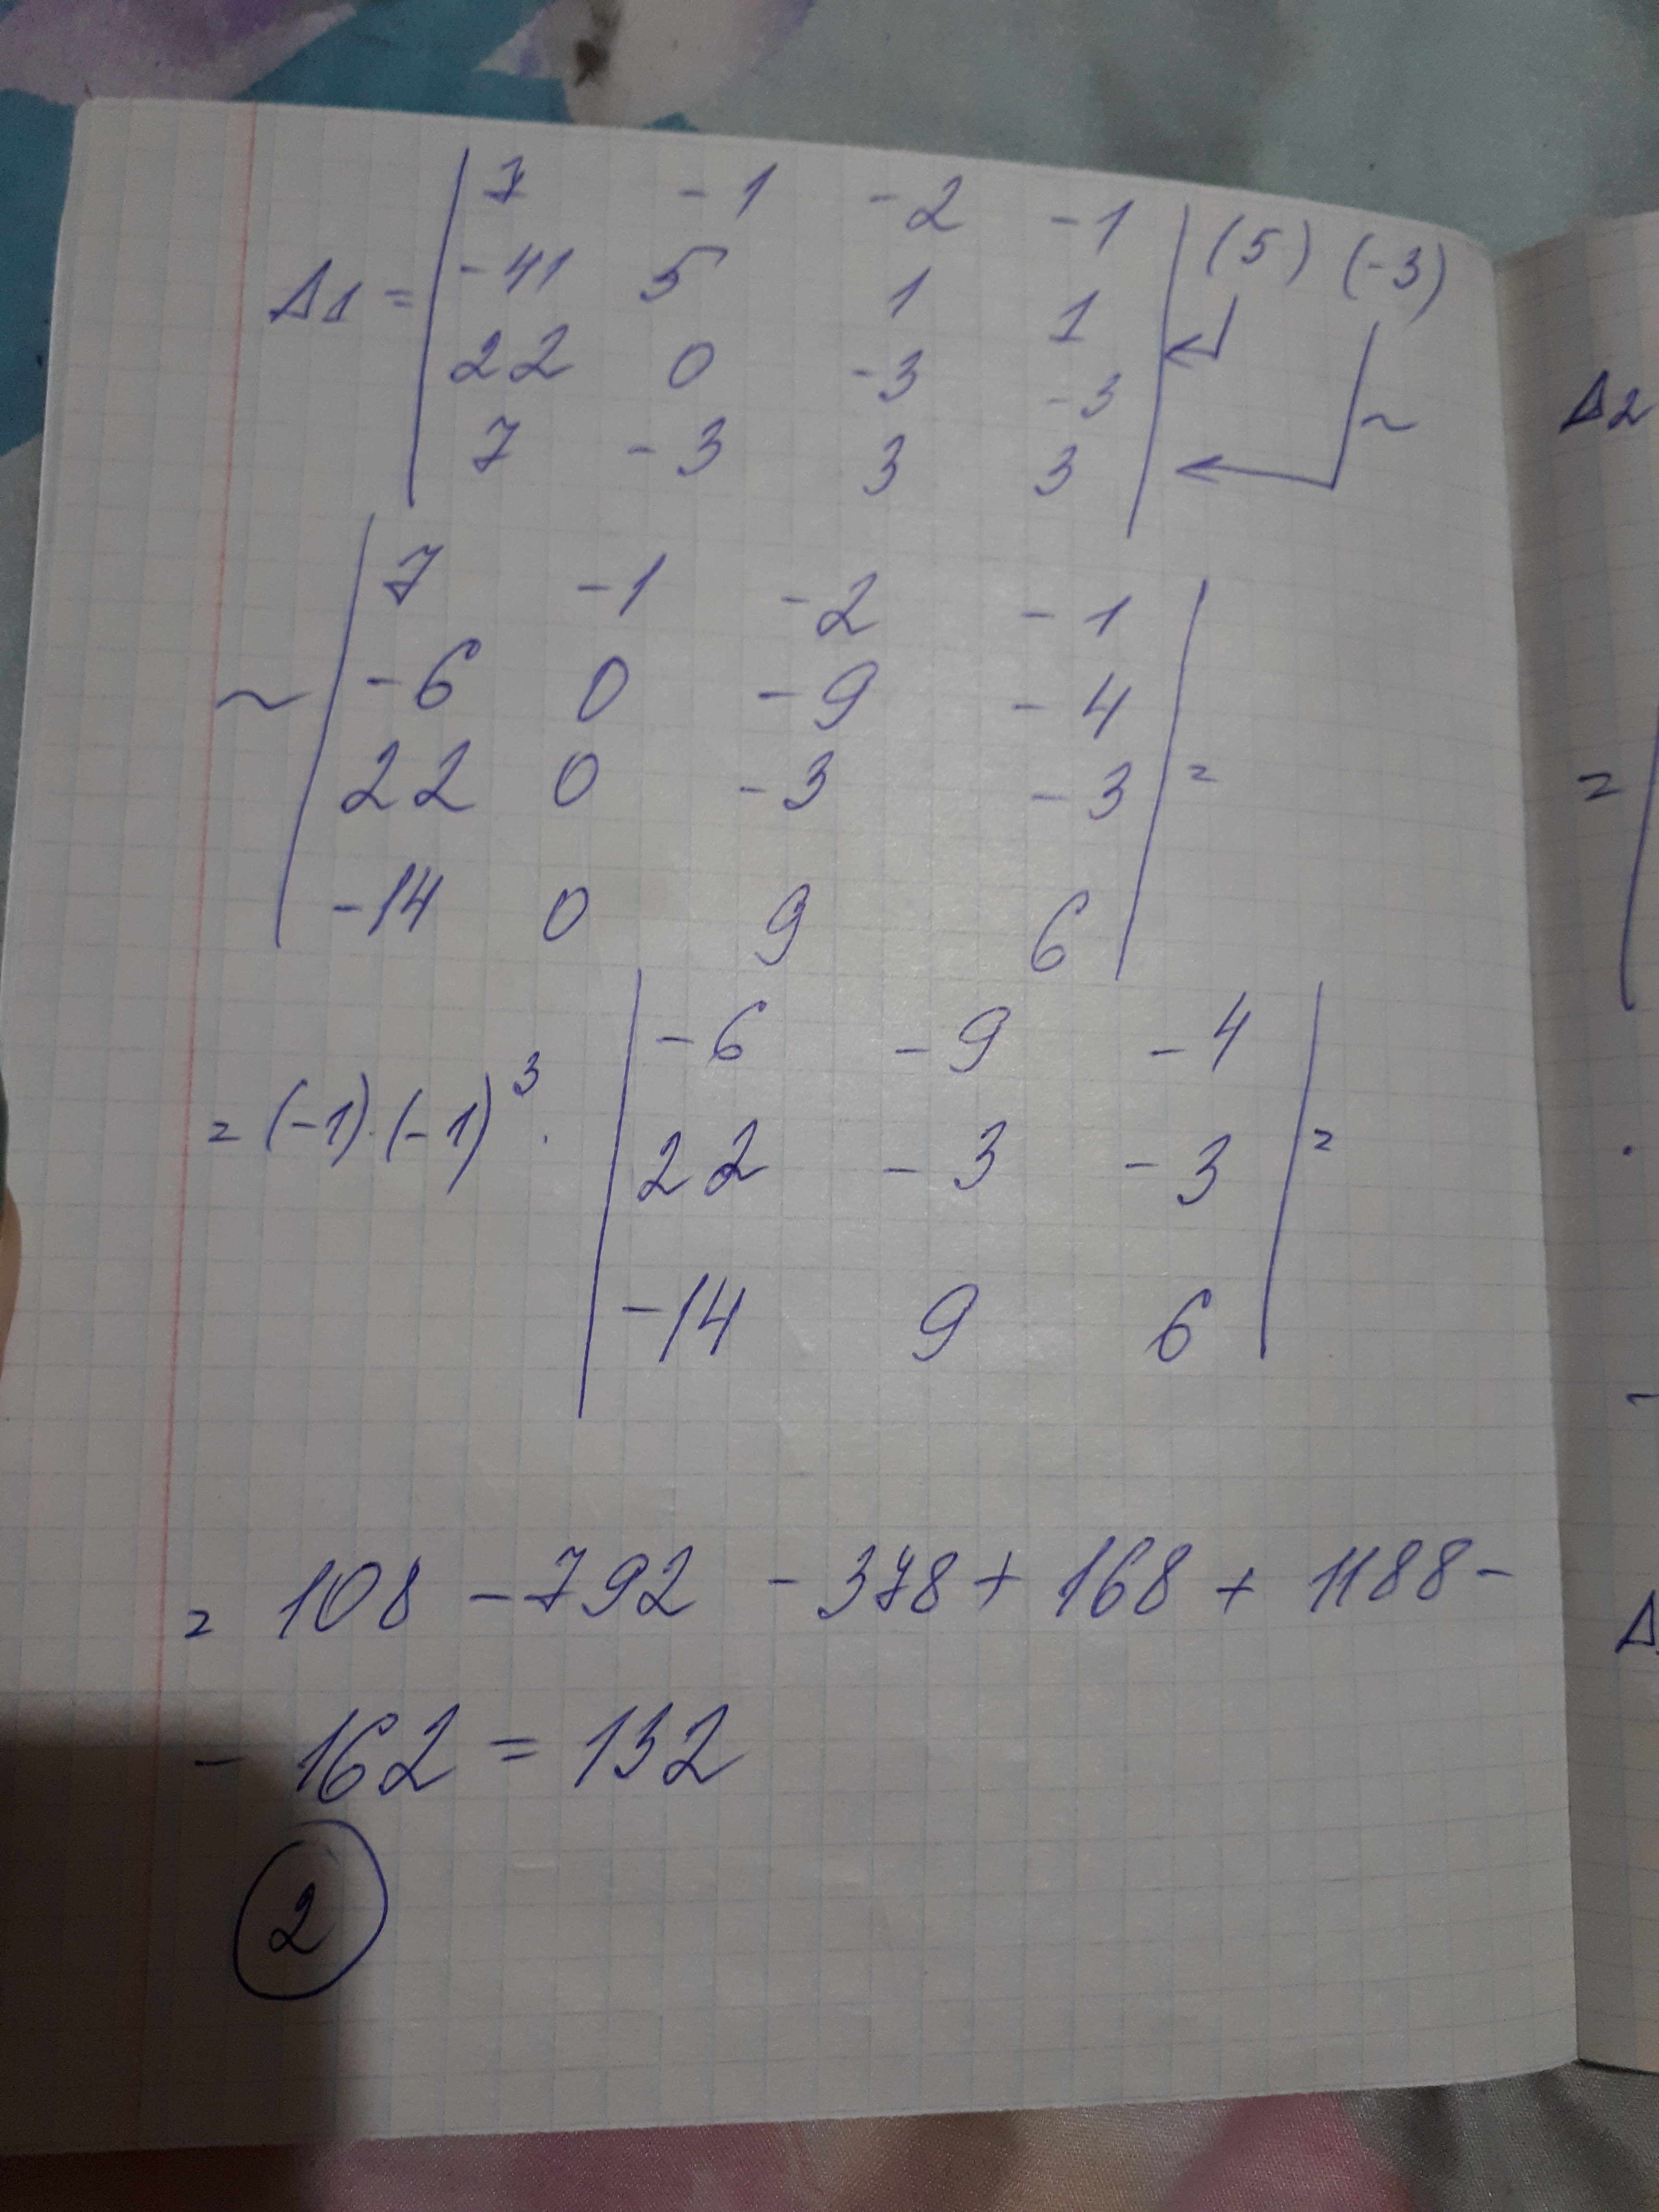 7 -1 -2 -1
Δ1 = -41 5 1 1 (5) (-3)
22 0 -3 -3 ~
7 -3 3 3
7 -1 -2 -1
~ -6 0 -9 -4
22 0 -3 -3 =
-14 0 9 6
-6 -9 -4
= (-1)·(-1)³· 22 -3 -3 =
-14 9 6
= 108 - 792 - 378 + 168 + 1188 -
- 162 = 132
2
Δ2
=